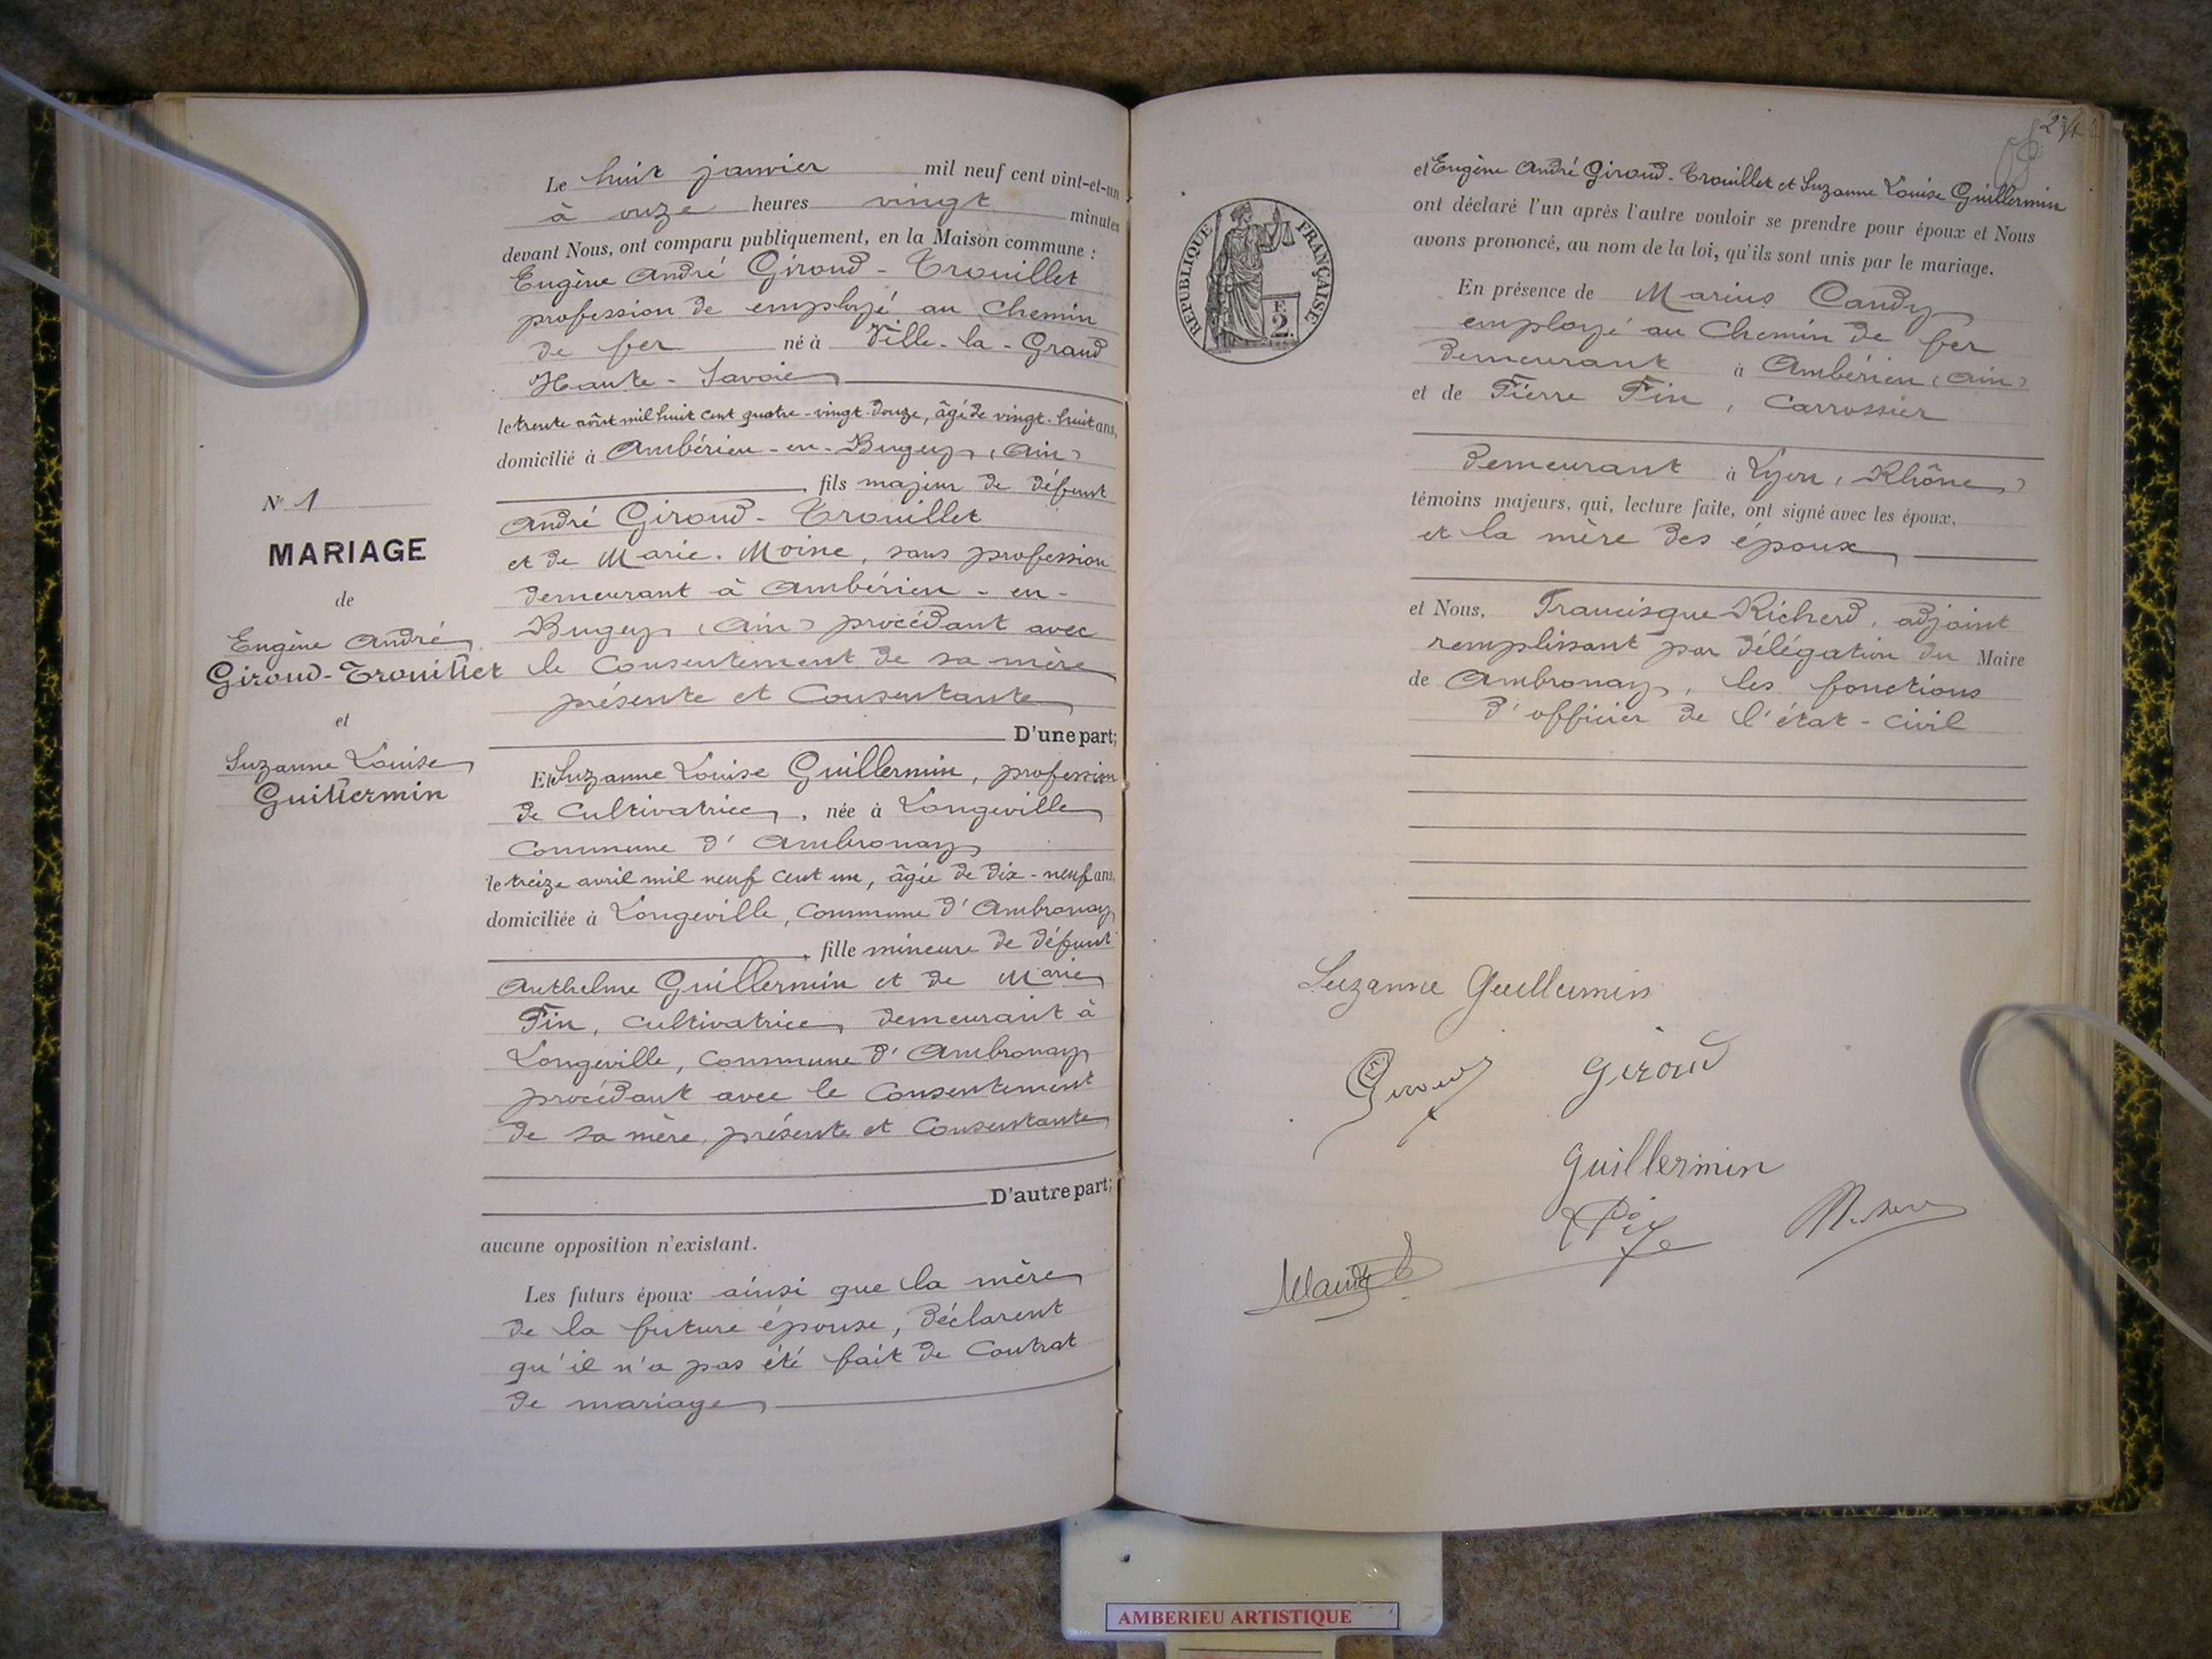 Le huit janvier mil neuf cent vint-et-un
à onze heures vingt minutes
devant Nous, ont comparu publiquement, en la Maison commune :
Eugène André Giroud-Trouillet
profession de employé au Chemin
de fer né à Ville-la-Grand
Haute-Savoie
le trente août mil huit cent quatre-vingt-douze, âgé de vingt-huit ans,
domicilié à Ambérieu-en-Bugey (Ain)
, fils majeur de défunt
André Giroud-Trouillet
et de Marie Moine, sans profession
demeurant à Ambérieu-en-
Bugey (Ain) procédant avec
le Consentement de sa mère
présente et Consentante
D'une part;
Et Suzanne Louise Guillermin, profession
de Cultivatrice, née à Longeville
Commune d'Ambronay
le treize avril mil neuf cent un, âgée de dix-neuf ans,
domiciliée à Longeville, Commune d'Ambronay
, fille mineure de défunt
Anthelme Guillermin et de Marie
Fin, cultivatrice, demeurant à
Longeville, Commune d'Ambronay
procédant avec le Consentement
de sa mère, présente et Consentante
D'autre part;
aucune opposition n'existant.
Les futurs époux ainsi que la mère
de la future épouse, déclarent
qu'il n'a pas été fait de Contrat
de mariage
N° 1
MARIAGE
de
Eugène André
Giroud-Trouillet
et
Suzanne Louise
Guillermin
RÉPUBLIQUE FRANÇAISE
E
2.
et Eugène André Giroud-Trouillet et Suzanne Louise Guillermin
ont déclaré l'un après l'autre vouloir se prendre pour époux et Nous
avons prononcé, au nom de la loi, qu'ils sont unis par le mariage.
En présence de Marius Candy
employé au Chemin de fer
demeurant à Ambérieu (Ain)
et de Pierre Fin, Carrossier
demeurant à Lyon (Rhône)
témoins majeurs, qui, lecture faite, ont signé avec les époux,
et la mère des époux
et Nous, Francisque Richerd, adjoint
remplissant par délégation du Maire
de Ambronay, les fonctions
d'officier de l'état-civil
Suzanne Guillermin
Giroud Giroud
Guillermin
AMBERIEU ARTISTIQUE